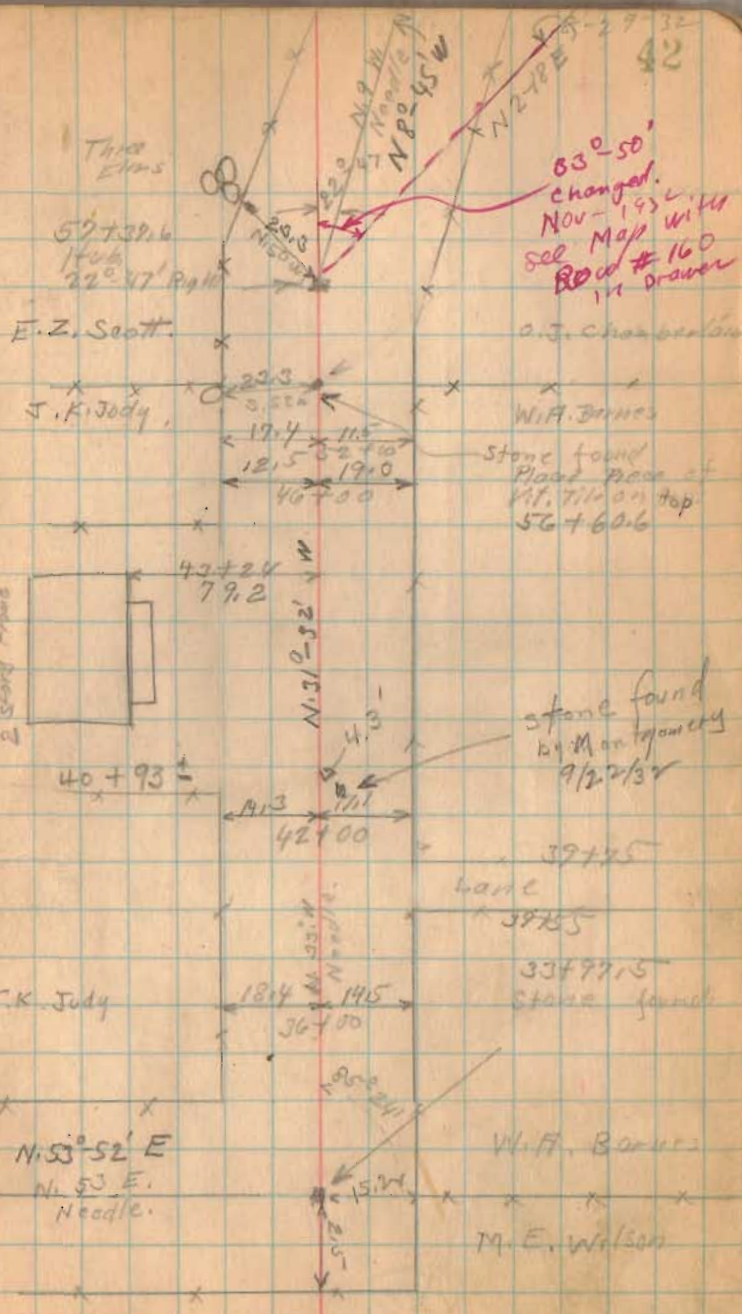 9-29-32
42
N 9 W
Needle
N 8°-45' W
N 2-18 E
22°-47'
Three
Elms
83°-50'
changed.
Nov-1932
See Map with
Road #160
in Drawer
23.3
N50W
57+39.6
Hub
22°-47' Right
E.Z. Scott.
O.J. Chamberlain
22.3
J.K. Judy.
W.A. Barnes
17.4 11.5
52+00
Stone found
Placed Piece of
Vit. Tile on top
56+60.6
12.5 19.0
46+00
43+24
79.2
2 Story Frame
N.31°-32' W
4.3
Stone found
by Montgomery
9/22/32
40+93±
14.3 17.1
42+00
39+75
Lane
39+55
N. 33° W
Needle.
33+97.5
Stone found
J.K. Judy
18.4 14.5
36+00
85°-24'
N.53°-52' E
N. 53 E.
Needle.
W.A. Barnes
15.2
M.E. Wilson
2.5